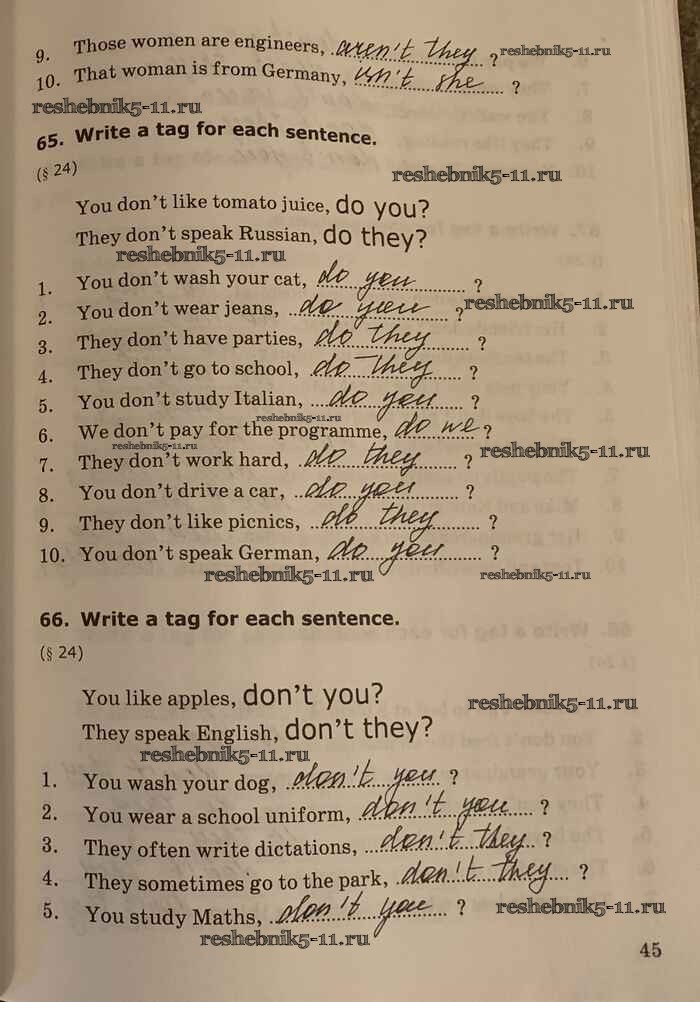 9. Those women are engineers, aren't they ? reshebnik5-11.ru
10. That woman is from Germany, isn't she ?
reshebnik5-11.ru
65. Write a tag for each sentence.
(§ 24) reshebnik5-11.ru
You don't like tomato juice, do you?
They don't speak Russian, do they?
reshebnik5-11.ru
1. You don't wash your cat, do you ?
2. You don't wear jeans, do you ? reshebnik5-11.ru
3. They don't have parties, do they ?
4. They don't go to school, do they ?
5. You don't study Italian, do you ?
reshebnik5-11.ru
6. We don't pay for the programme, do we ?
reshebnik5-11.ru reshebnik5-11.ru
7. They don't work hard, do they ?
8. You don't drive a car, do you ?
9. They don't like picnics, do they ?
10. You don't speak German, do you ?
reshebnik5-11.ru reshebnik5-11.ru
66. Write a tag for each sentence.
(§ 24)
You like apples, don't you? reshebnik5-11.ru
They speak English, don't they?
reshebnik5-11.ru
1. You wash your dog, don't you ?
2. You wear a school uniform, don't you ?
3. They often write dictations, don't they ?
4. They sometimes go to the park, don't they ?
5. You study Maths, don't you ? reshebnik5-11.ru
reshebnik5-11.ru
45